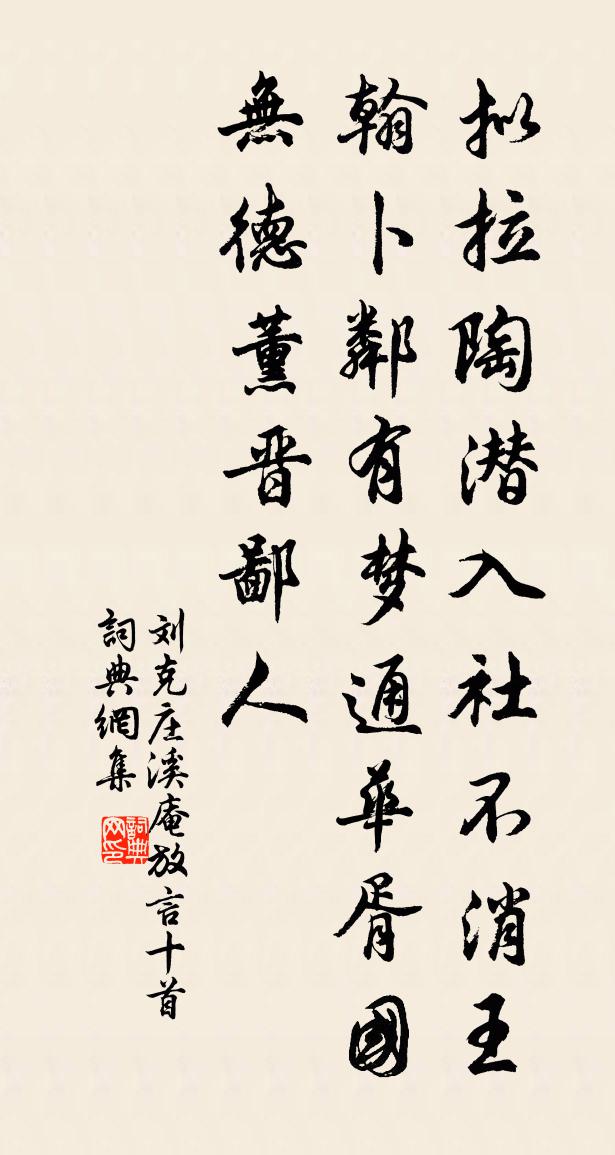 拟拉陶潜入社不消王
翰卜鄰有梦通華胥國
無德薰晋鄙人
刘克庄溪庵放言十首
詞典網集
詞典网印